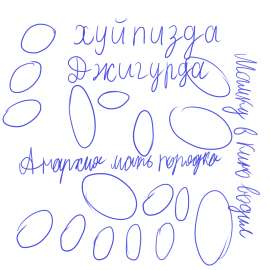 хуйпизда
Джигурда
Анархия мать порядка
Машку в кино водил